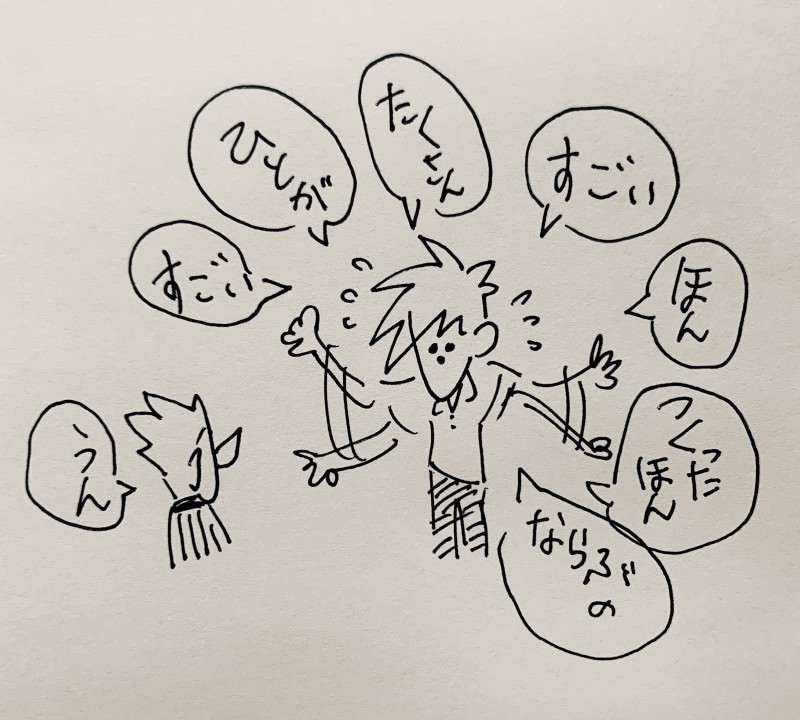 すごい
ひとが
たくさん
すごい
ほん
つくった
ほん
ならぶの
うん